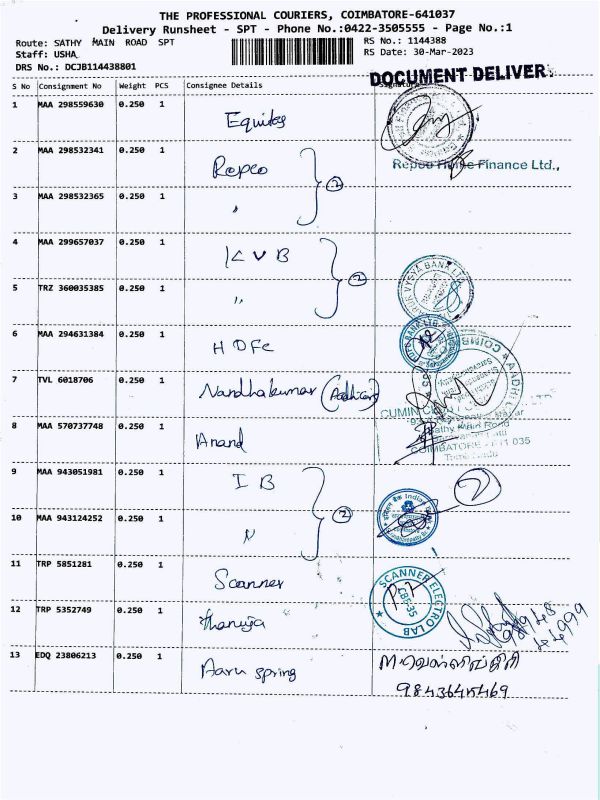 THE PROFESSIONAL COURIERS, COIMBATORE-641037
Delivery Runsheet - SPT - Phone No.:0422-3505555 - Page No.:1
Route: SATHY MAIN ROAD SPT
Staff: USHA
DRS No.: DCJB114438801
RS No.: 1144388
RS Date: 30-Mar-2023
DOCUMENT DELIVER
S No Consignment No Weight PCS Consignee Details
1 MAA 298559630 0.250 1 Equitas
2 MAA 298532341 0.250 1 Repco
Repco Home Finance Ltd.,
3 MAA 298532365 0.250 1 "
2
4 MAA 299657037 0.250 1 KVB
5 TRZ 360035385 0.250 1 "
2
VYSYA BANK LTD
6 MAA 294631384 0.250 1 HDFC
HDFC BANK LTD.
7 TVL 6018706 0.250 1 Nandhakumar
8 MAA 570737748 0.250 1 Anand
Sathy Main Road
COIMBATORE - 641 035
Tamil Nadu
9 MAA 943051981 0.250 1 IB
10 MAA 943124252 0.250 1 "
2
Indian
11 TRP 5851281 0.250 1 Scanner
SCANNER ELECTRO LAB
CBE-35
12 TRP 5352749 0.250 1 Thanuja
98948
44999
13 EDQ 23806213 0.250 1 Aaru spring
9843645469